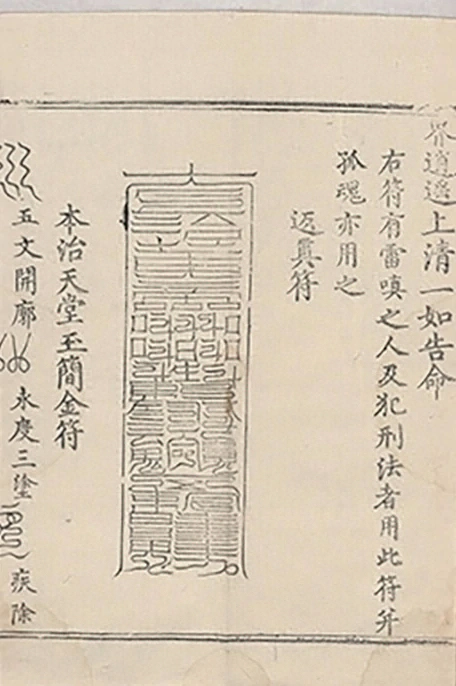 界逍遥上清一如告命
右符有雷嗔之人及犯刑法者用此符并
孤魂亦用之
迈真符
本治天堂玉簡金符
五文開廓
永度三塗
疾除